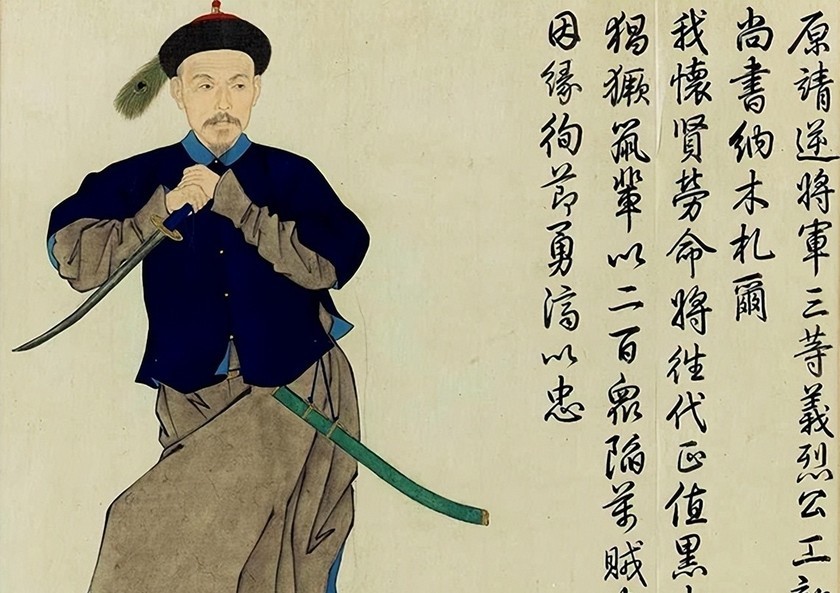 原靖逆將軍三等義烈公工
尚書納木札爾
我懷賢勞命將往代正值黑
猖獗鼠輩以二百衆陷萬賊
因緣徇節勇濟以忠